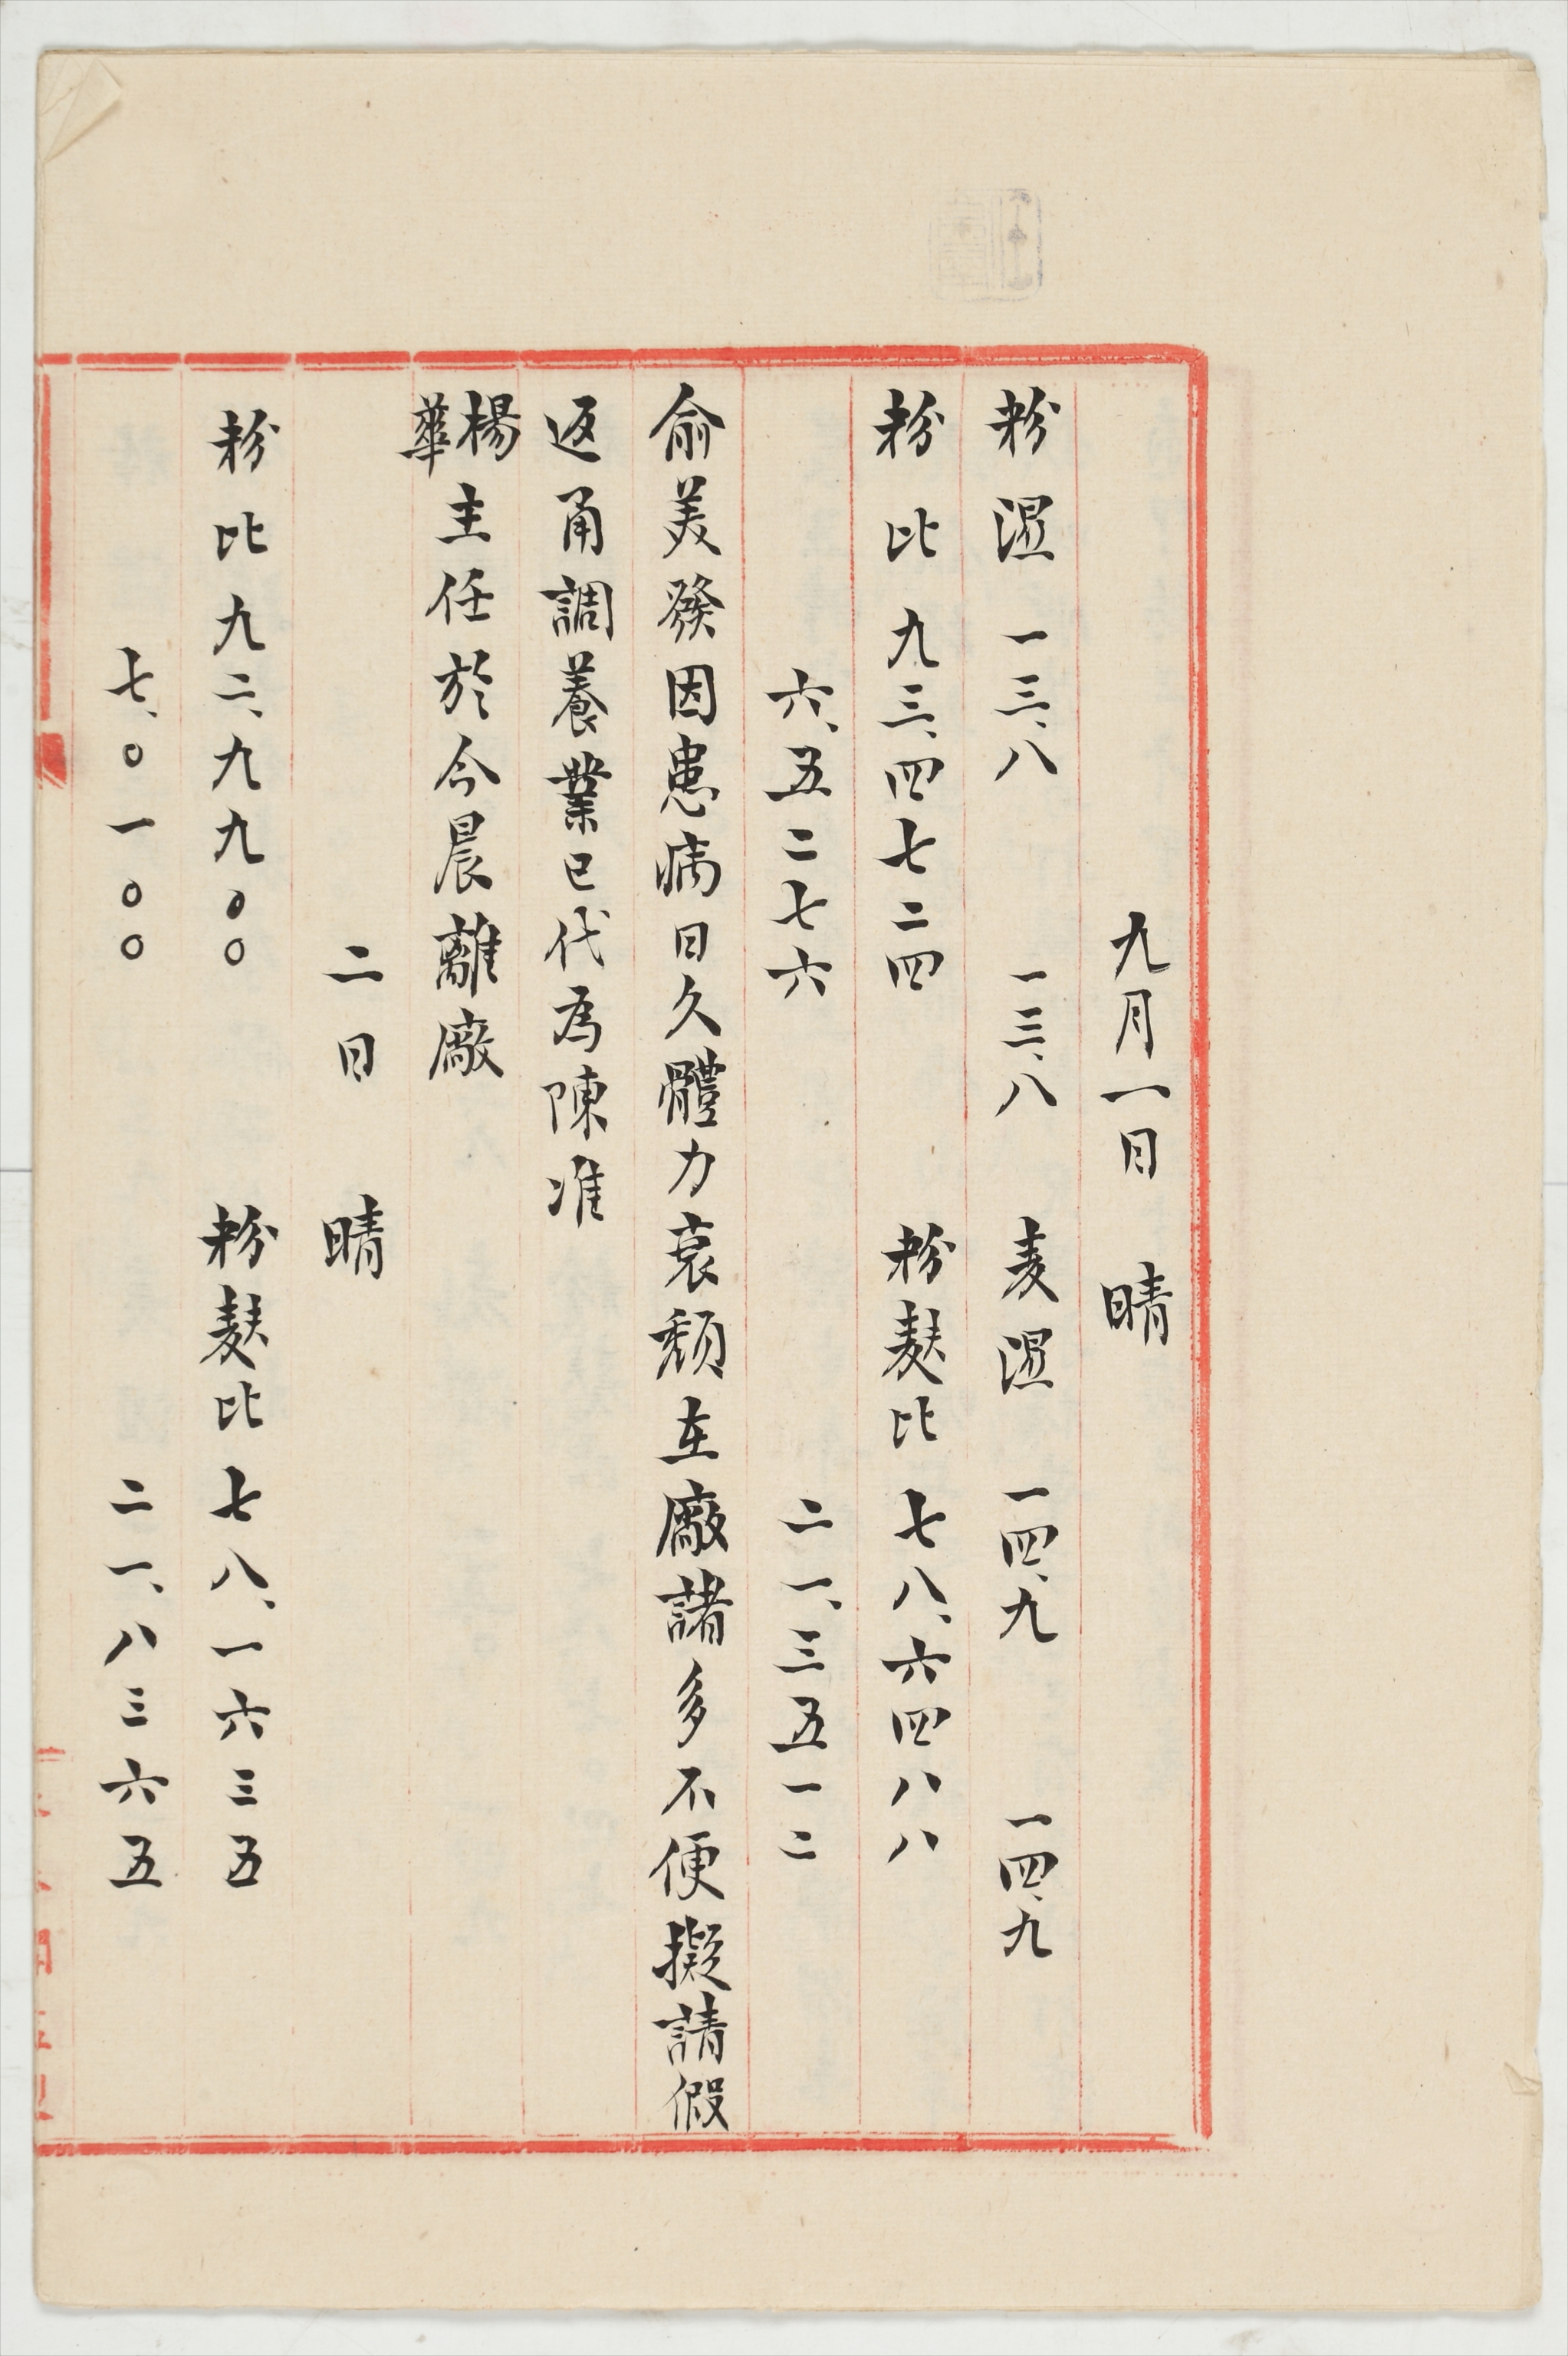 九月一日　晴
粉濕　一三、八　一三、八　麦濕　一四、九　一四、九
粉比　九三、四七二四　粉麩比　七八、六四八八
六、五二七六　二一、三五一二
俞美發因患病日久體力衰頹在廠諸多不便擬請假
返甬調養業已代為陳准
楊華主任於今晨離廠
二日　晴
粉比　九二、九九〇〇　粉麩比　七八、一六三五
七、〇一〇〇　二一、八三六五